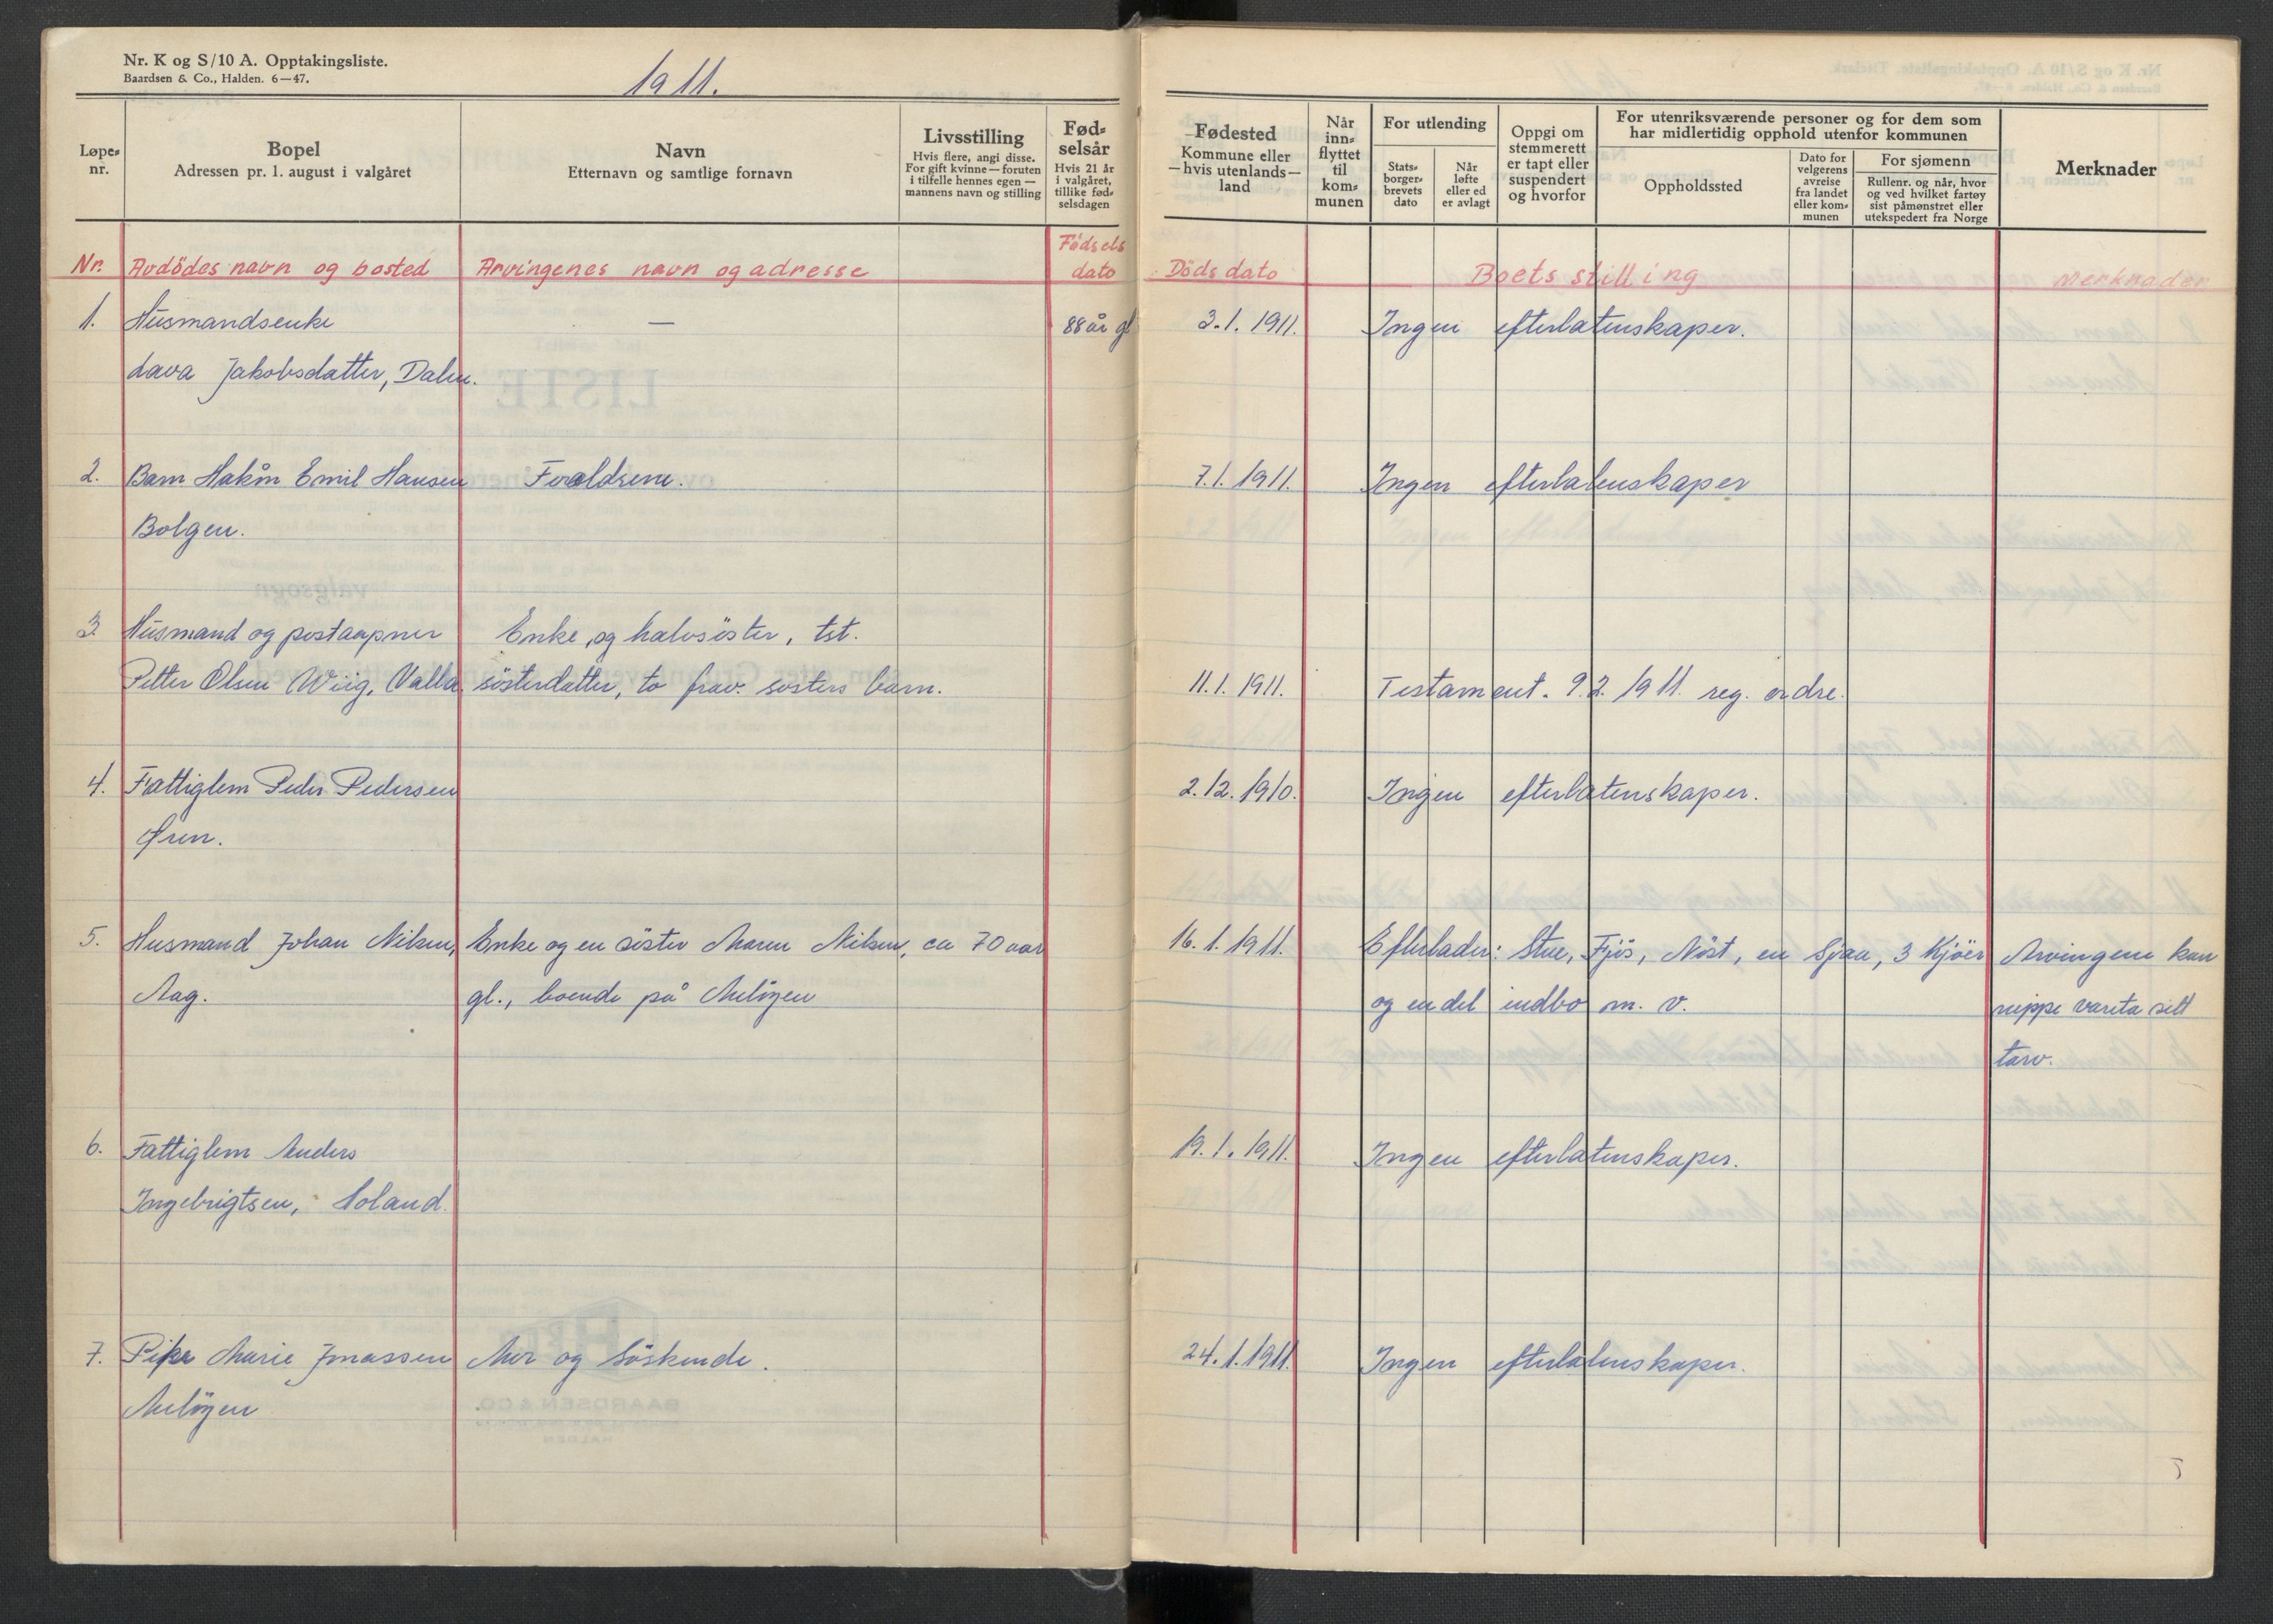 Nr. K og S/10 A. Opptakingsliste.
Baardsen & Co., Halden. 6—47.
1911.
Løpe-
nr.
Bopel
Adressen pr. 1. august i valgåret
Navn
Etternavn og samtlige fornavn
Livsstilling
Hvis flere, angi disse.
For gift kvinne — foruten
i tilfelle hennes egen —
mannens navn og stilling
Fød-
selsår
Hvis 21 år
i valgåret,
tillike fød-
selsdagen
Fødested
Kommune eller
— hvis utenlands —
land
Når
inn-
flyttet
til
kom-
munen
For utlending
Stats-
borger-
brevets
dato
Når
løfte
eller ed
er avlagt
Oppgi om
stemmerett
er tapt eller
suspendert
og hvorfor
For utenriksværende personer og for dem som
har midlertidig opphold utenfor kommunen
Oppholdssted
Dato for
velgerens
avreise
fra landet
eller kom-
munen
For sjømenn
Rullenr. og når, hvor
og ved hvilket fartøy
sist påmønstret eller
utekspedert fra Norge
Merknader
Nr. Avdödes navn og bosted Arvingenes navn og adresse Födsels
dato Döds dato Boets stilling Merknader
1. Husmandsenke — 88 år gl 3.1.1911. Ingen efterlatenskaper.
Lava Jakobsdatter, Dalen.
2. Barn Hakon Emil Hansen Foreldrene. 7.1.1911. Ingen efterlatenskaper
Bolgen.
3. Husmand og postaapner Enke, og halvsöster, tst.
Petter Olsen Wiig, Valla. sösterdatter, to frav. sösters barn. 11.1.1911. Testament. 9.2.1911. reg. ordre.
4. Fattiglem Peder Pedersen 2.12.1910. Ingen efterlatenskaper.
Øren.
5. Husmand Johan Nilsen, Enke og en söster Maren Nilsen, ca 70 aar 16.1.1911. Efterlader: Stue, Fjös, Nöst, en Sjaa, 3 Kjöer Arvingene kan
Aag. gl., boende på Melöyen og en del indbo m. v. neppe vareta sitt
tarv.
6. Fattiglem Anders 19.1.1911. Ingen efterlatenskaper.
Ingebrigtsen, Soland.
7. Pike Marie Jonassen Mor og Söskende. 24.1.1911. Ingen efterlatenskaper.
Melöyen